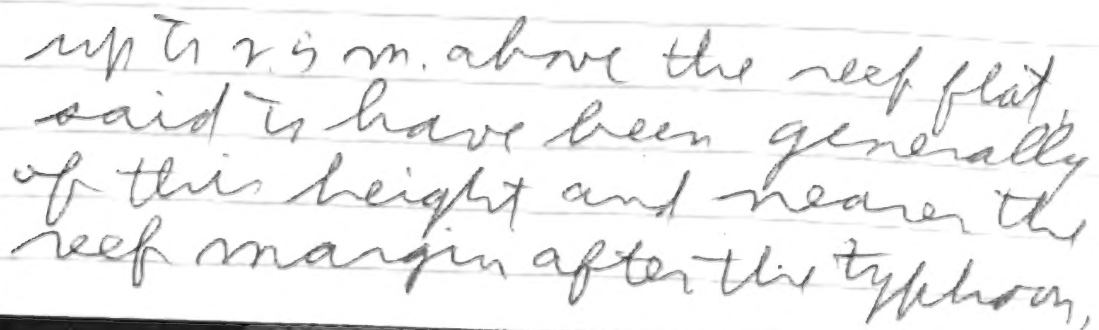 up to 2.5 m. above the reef flat,
said to have been generally
of this height and nearer the
reef margin after the typhoon,